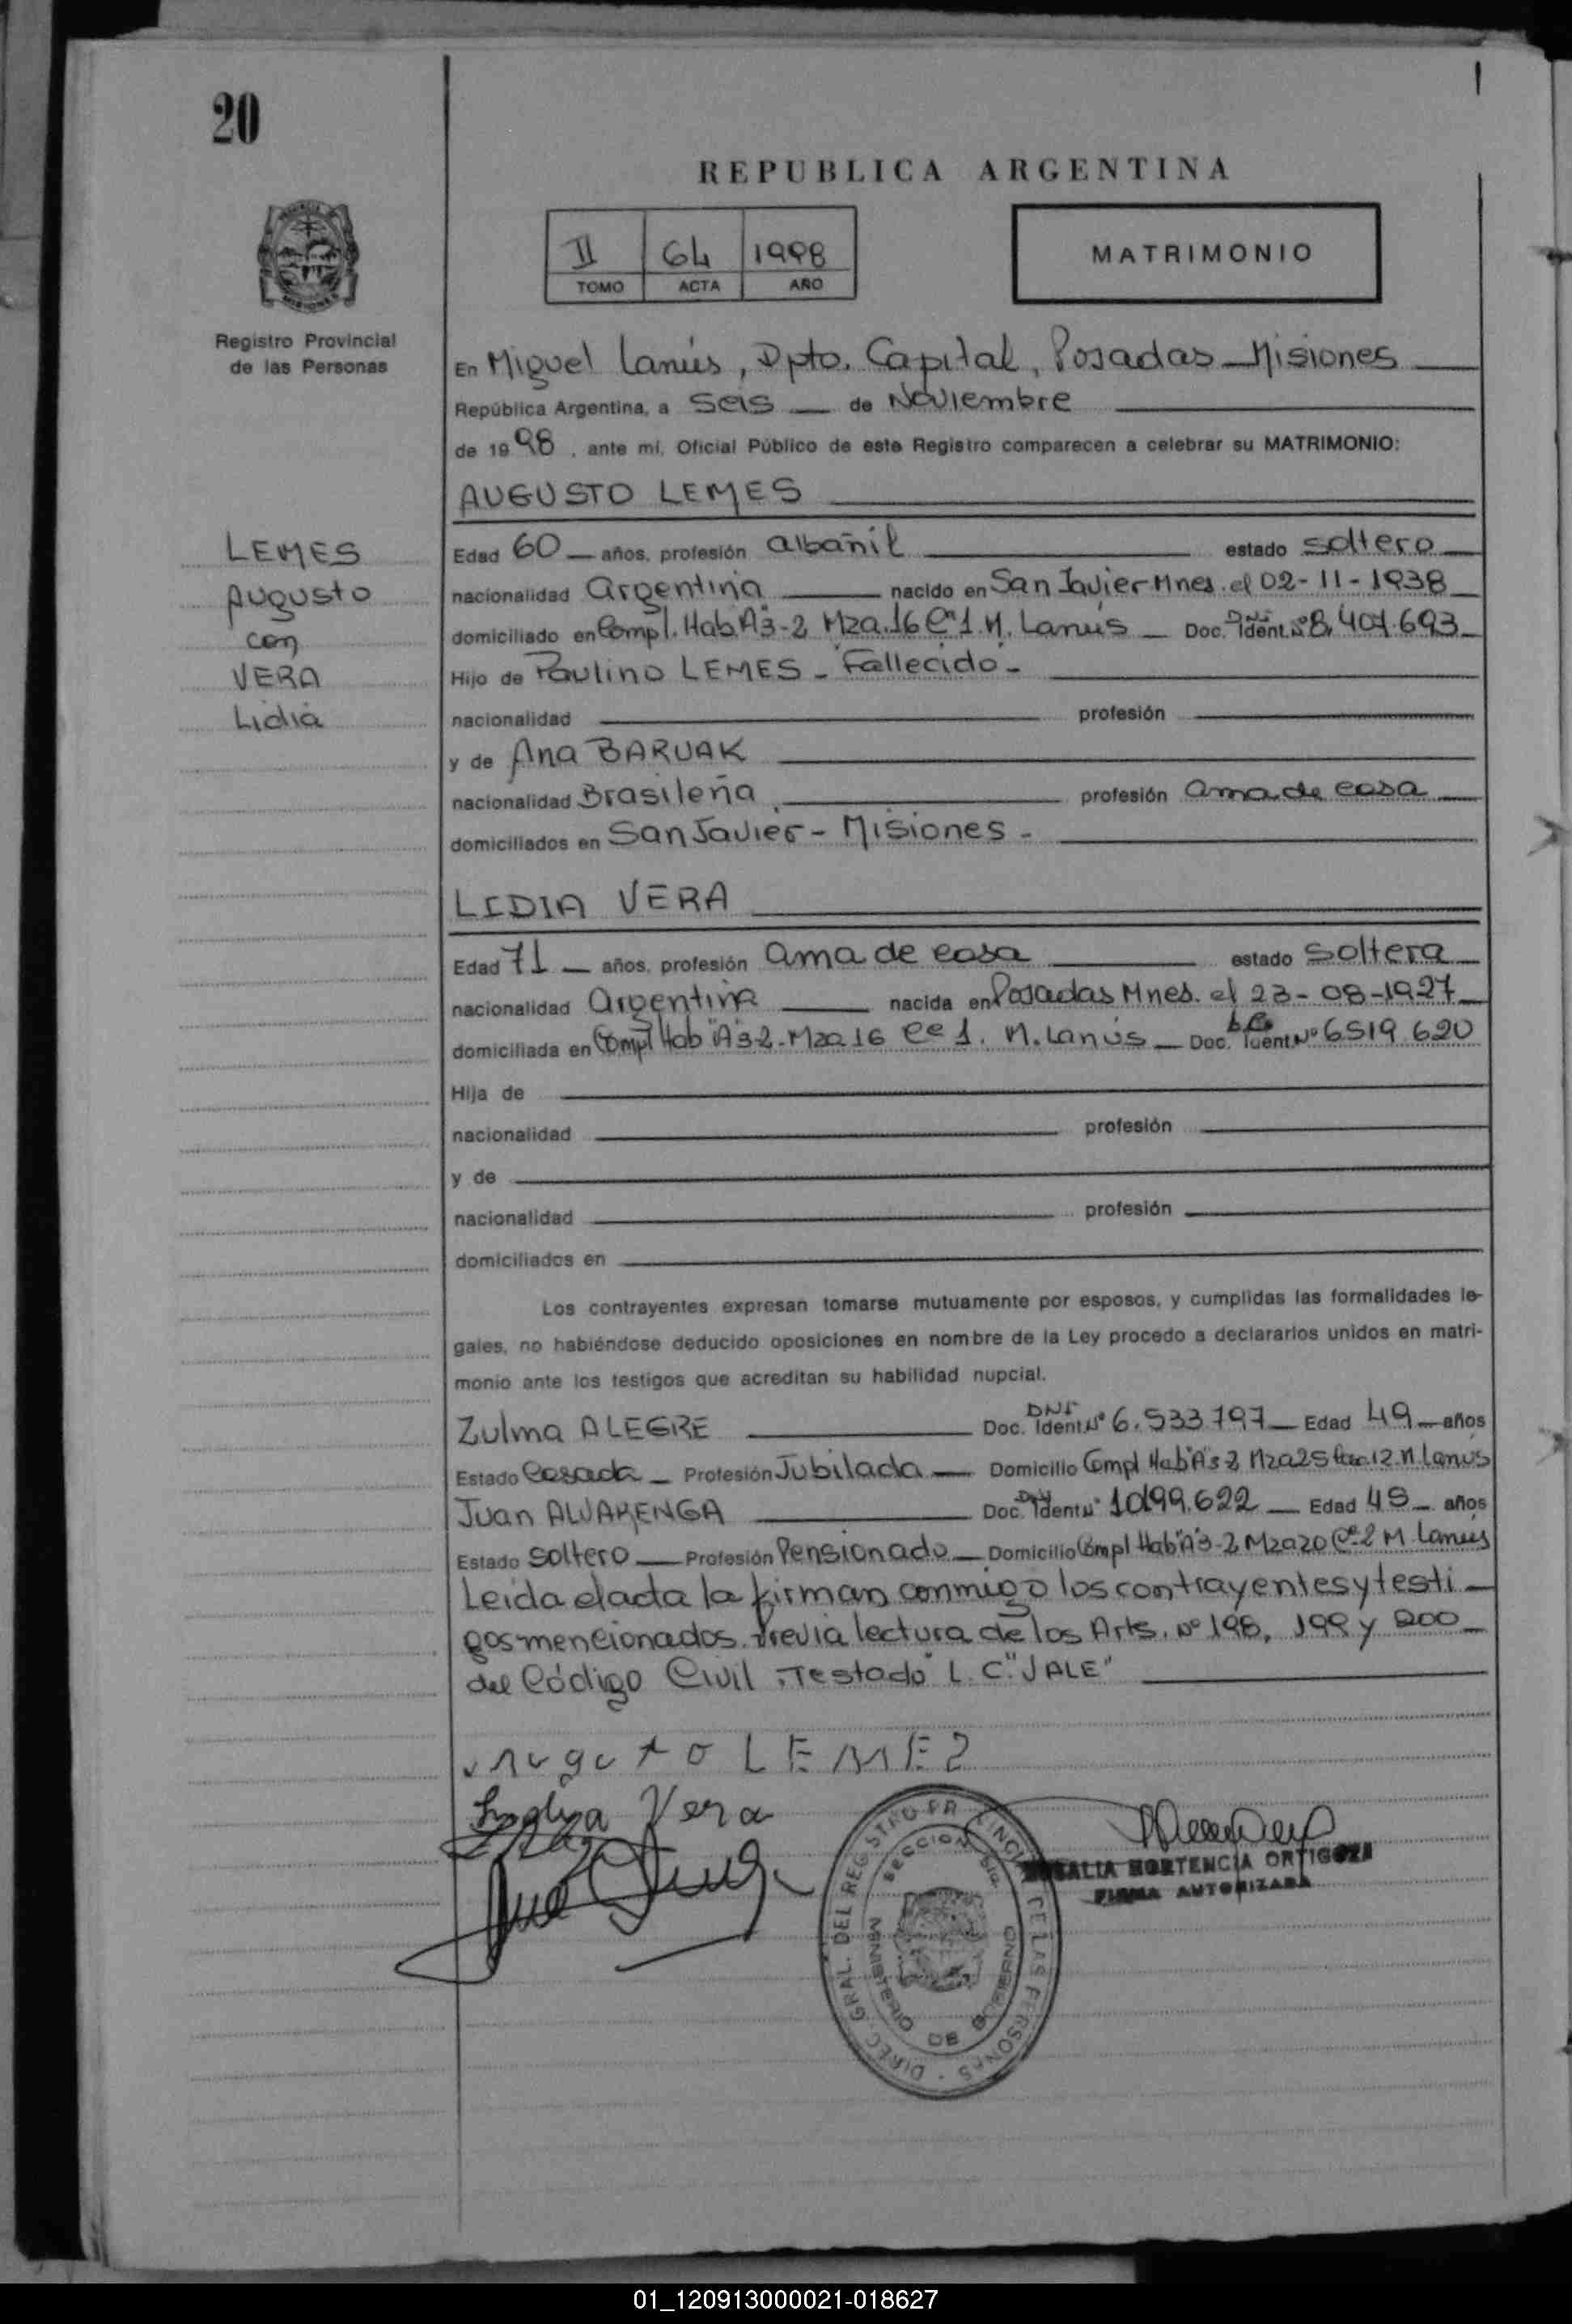 20
REPUBLICA ARGENTINA
II 64 1998
TOMO ACTA AÑO
MATRIMONIO
Registro Provincial
de las Personas
En Miguel Lanús, Dpto. Capital, Posadas - Misiones
República Argentina, a seis de Noviembre
de 1998, ante mi, Oficial Público de este Registro comparecen a celebrar su MATRIMONIO:
AUGUSTO LEMES
LEMES
Augusto
con
VERA
Lidia
Edad 60 años, profesión albañil estado soltero
nacionalidad argentina nacido en San Javier Mnes. el 02-11-1938
domiciliado en Compl. Hab. A3-2 Mza. 16 Cª 1. M. Lanús Doc. Ident. Nº 8.401.693
Hijo de Paulino LEMES - Fallecido -
nacionalidad profesión
y de Ana BARUAK
nacionalidad Brasileña profesión ama de casa
domiciliados en San Javier - Misiones -
LIDIA VERA
Edad 71 años, profesión ama de casa estado soltera
nacionalidad argentina nacida en Posadas Mnes. el 23-08-1927
domiciliada en Compl Hab "A"3-2- Mza 16 Cª 1. M. Lanús Doc. Ident. Nº 6519.620
Hija de
nacionalidad profesión
y de
nacionalidad profesión
domiciliados en
Los contrayentes expresan tomarse mutuamente por esposos, y cumplidas las formalidades le-
gales, no habiéndose deducido oposiciones en nombre de la Ley procedo a declararlos unidos en matri-
monio ante los testigos que acreditan su habilidad nupcial.
Zulma ALEGRE Doc. DNI Ident. Nº 6.533.797 Edad 49 años
Estado Casada Profesión Jubilada Domicilio Compl Hab "A"3-2 Mza 25 12 M. Lanús
Juan ALVARENGA Doc. DNI Ident. Nº 10.199.622 Edad 45 años
Estado soltero Profesión Pensionado Domicilio Compl Hab "A"3-2 Mza 20 Cª 2 M. Lanús
Leida el acta la firman conmigo los contrayentes y testi-
gos mencionados. Previa lectura de los Arts. Nº 198, 199 y 200
del Código Civil. Testado "L.C." JALE"
LEMES
Vera
DIREC. GRAL. DEL REGISTRO DE LAS PERSONAS
SECCION
MINISTERIO DE GOBIERNO
HORTENCIA ORTIGOZA
FIRMA AUTORIZADA
01_120913000021-018627